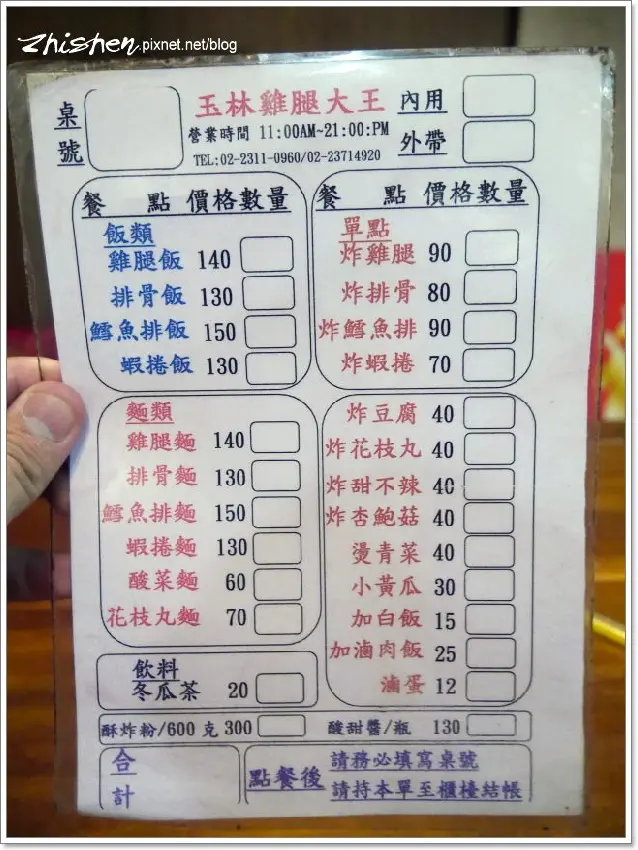 zhishen.pixnet.net/blog
桌號
玉林雞腿大王
營業時間 11:00AM~21:00:PM
TEL:02-2311-0960/02-23714920
內用
外帶
餐 點 價格數量
飯類
雞腿飯 140
排骨飯 130
鱈魚排飯 150
蝦捲飯 130
餐 點 價格數量
單點
炸雞腿 90
炸排骨 80
炸鱈魚排 90
炸蝦捲 70
麵類
雞腿麵 140
排骨麵 130
鱈魚排麵 150
蝦捲麵 130
酸菜麵 60
花枝丸麵 70
炸豆腐 40
炸花枝丸 40
炸甜不辣 40
炸杏鮑菇 40
燙青菜 40
小黃瓜 30
加白飯 15
加滷肉飯 25
滷蛋 12
飲料
冬瓜茶 20
酥炸粉/600 克 300
酸甜醬/瓶 130
合計
點餐後
請務必填寫桌號
請持本單至櫃檯結帳